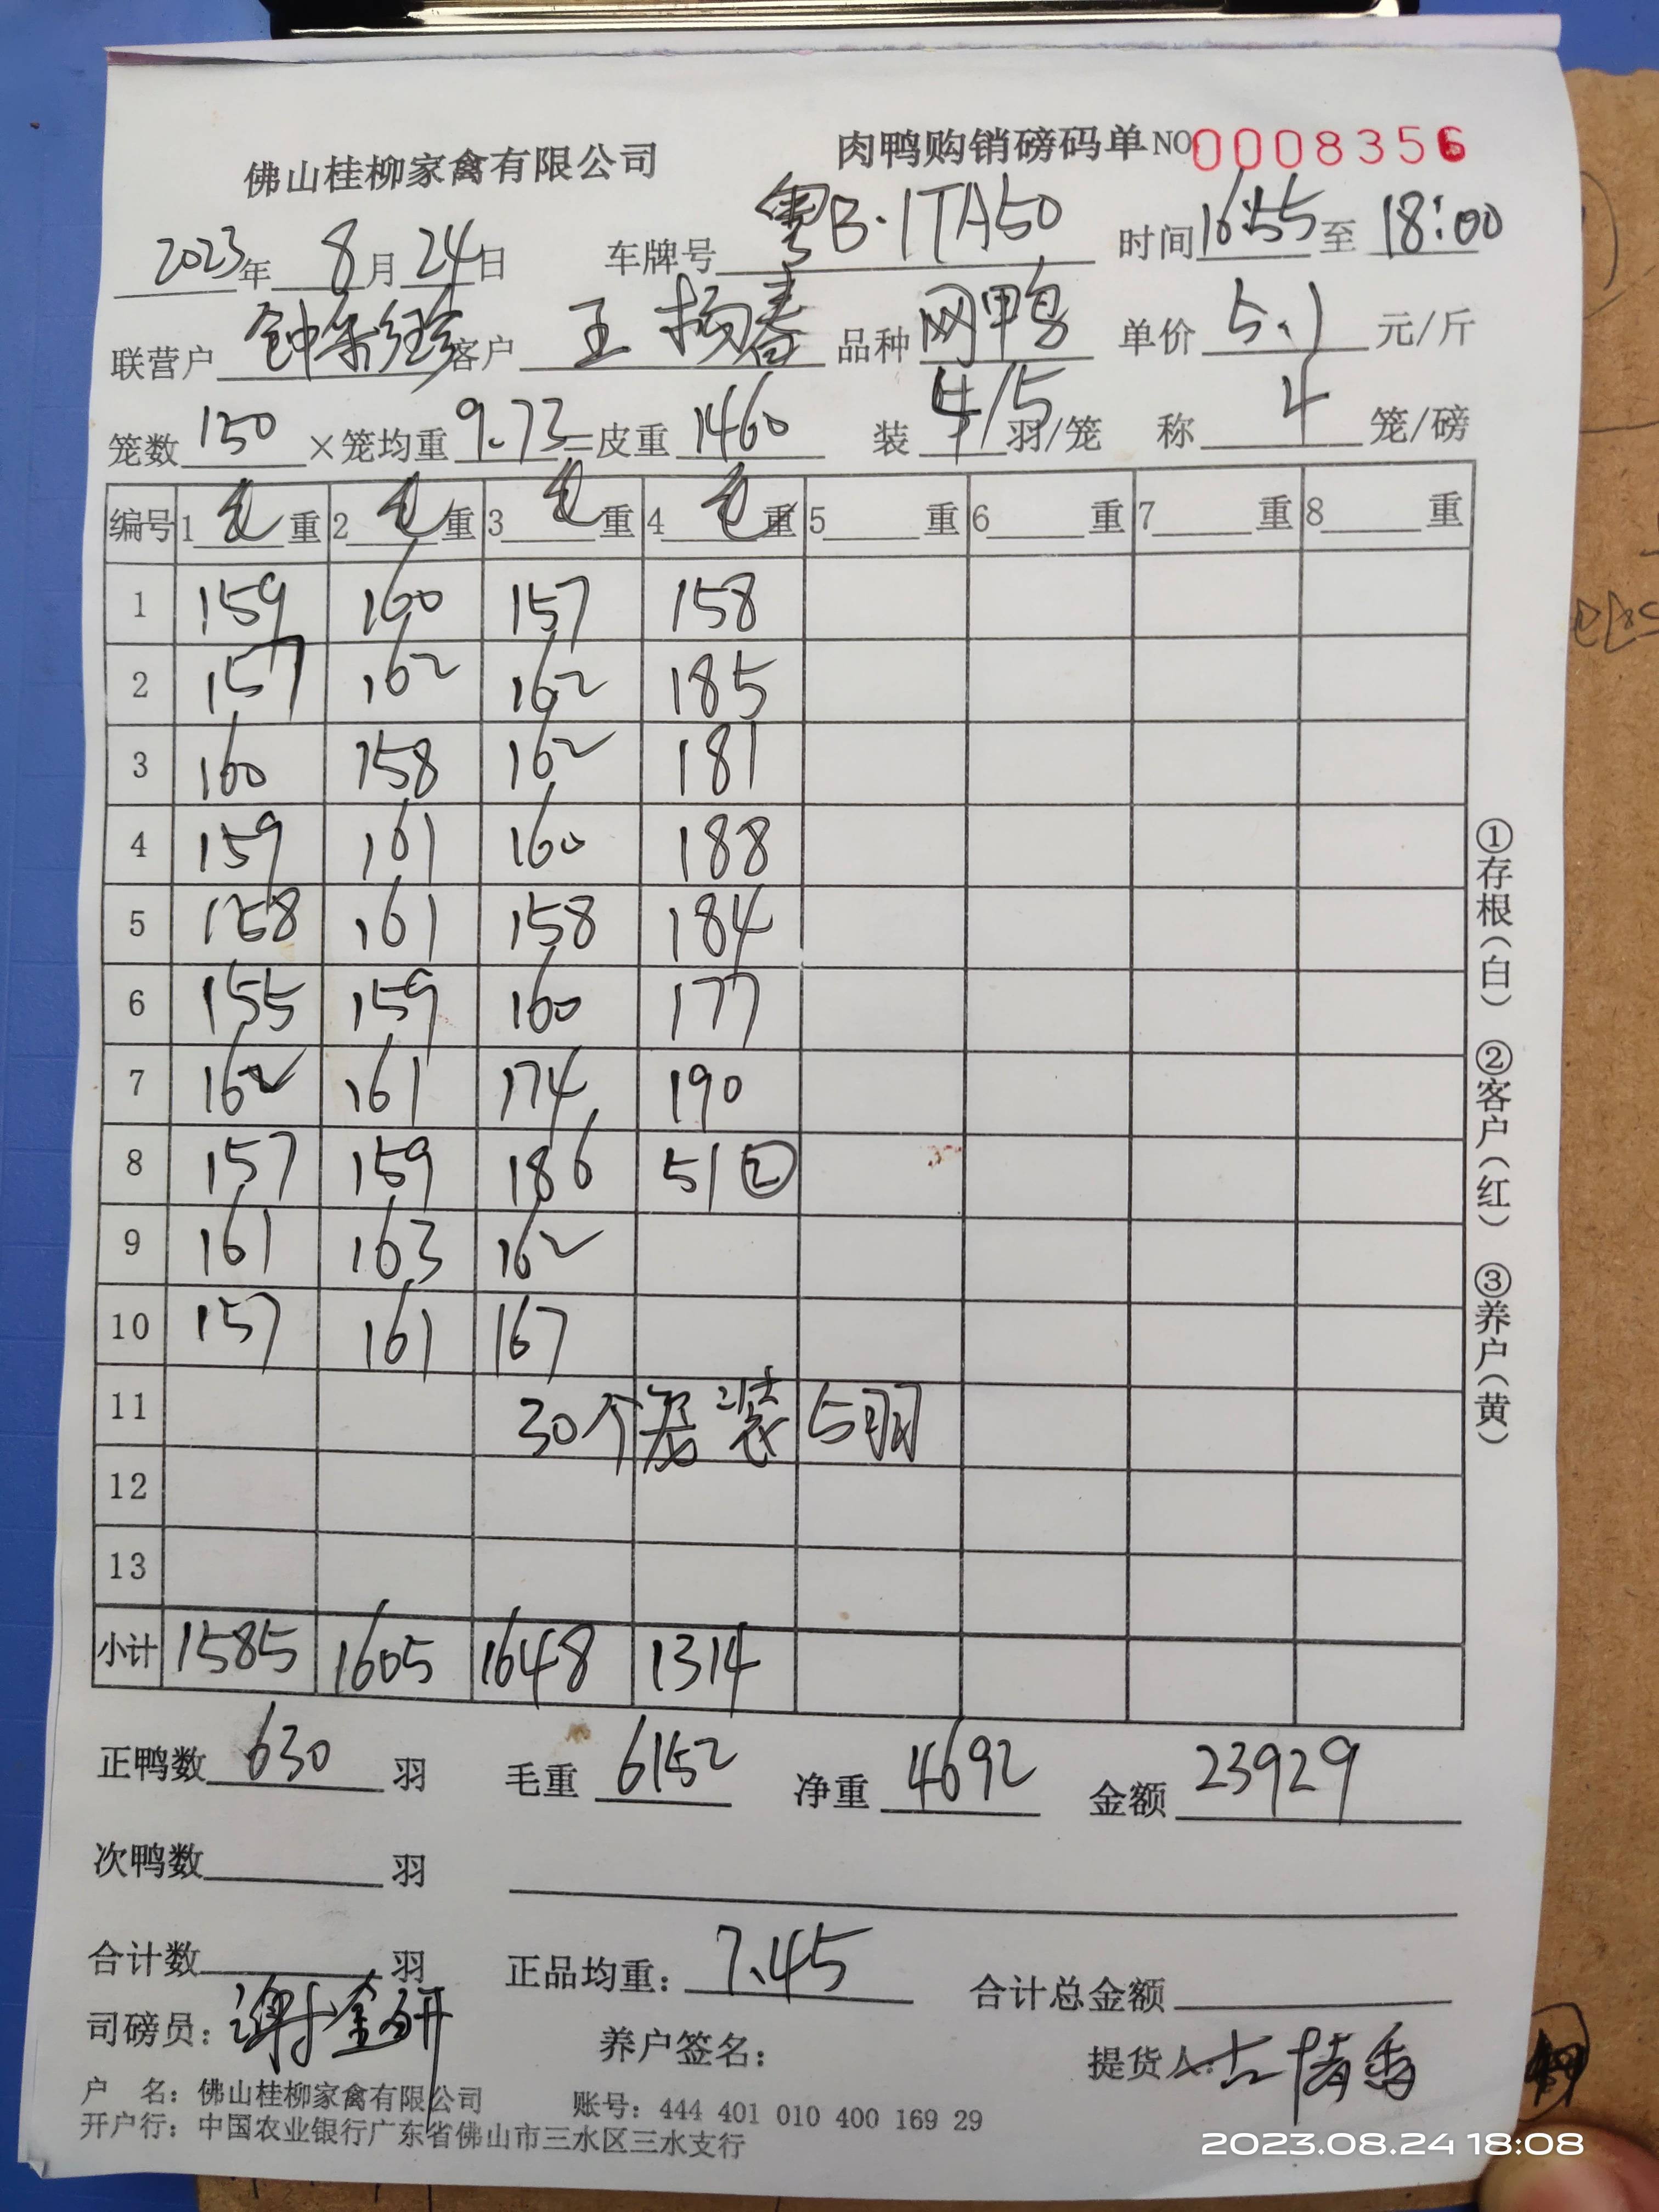 佛山桂柳家禽有限公司 肉鸭购销磅码单 NO 0008356
2023年 8月24日 车牌号 粤B·1TA50 时间 16:55 至 18:00
联营户 客户 王杨春 品种 网鸭 单价 5.1 元/斤
笼数 150 ×笼均重 9.73 =皮重 1460 装 4/5 羽/笼 称 4 笼/磅
编号 1 毛 重 2 毛 重 3 毛 重 4 毛 重 5 重 6 重 7 重 8 重
1 159 160 157 158
2 157 162 162 185
3 160 158 162 181
4 159 161 160 188
5 158 161 158 184
6 155 159 160 177
7 162 161 174 190
8 157 159 186 51②
9 161 163 162
10 157 161 167
11 30个笼装5羽
12
13
小计 1585 1605 1648 1314
①存根(白) ②客户(红) ③养户(黄)
正鸭数 630 羽 毛重 6152 净重 4692 金额 23929
次鸭数 羽
合计数 羽 正品均重: 7.45 合计总金额
司磅员: 养户签名: 提货人:
户 名: 佛山桂柳家禽有限公司 账号: 444 401 010 400 169 29
开户行: 中国农业银行广东省佛山市三水区三水支行
2023.08.24 18:08